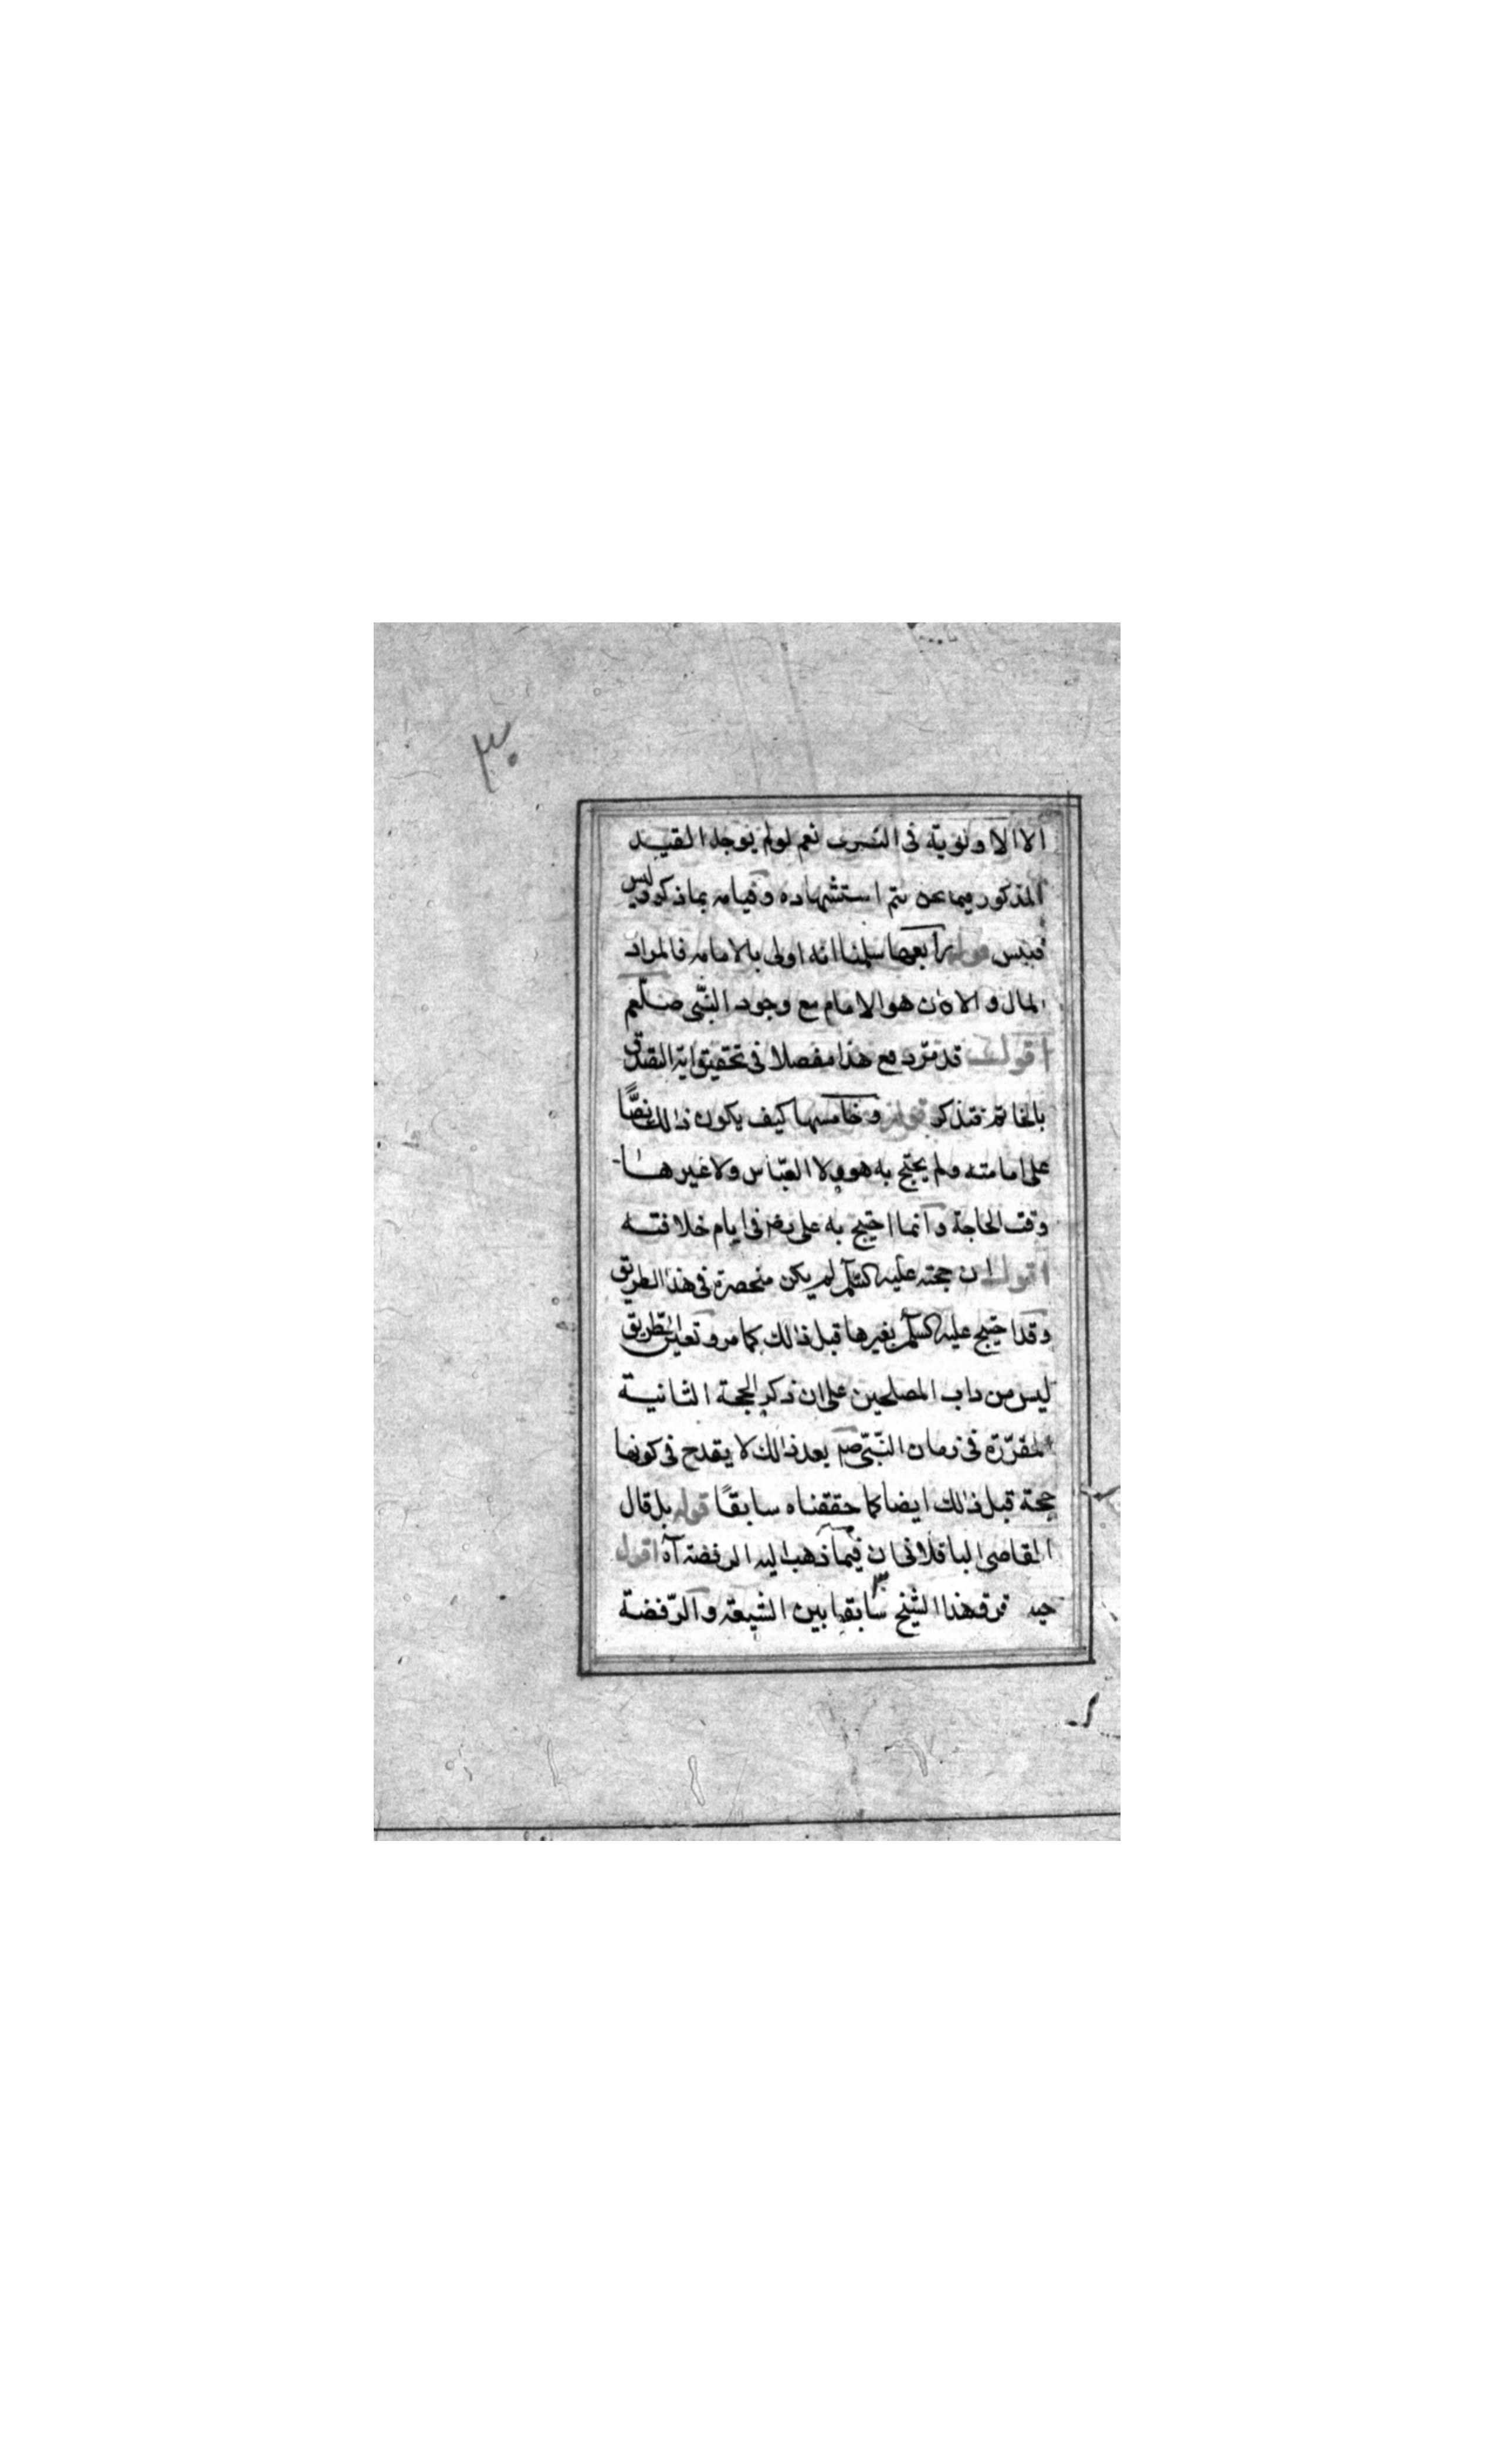 ٣٠
الا الاولوية فى التصرف نعم لو لم يوجد القيد
المذكور فيما نحن يتم استشهاده وقيامه بما ذكره وليس
فليس قوله رابعها سلمنا انه اولى بالامامه فالمراد
المال والا كان هو الامام مع وجود النبّى صلّعم
اقول قد مرّ دفع هذا مفصلا فى تحقيق اية التصدق
بالخاتم فتذكر قوله وخامسها كيف يكون ذالك نصًّا
على امامته ولم يحتج به هو ولا العبّاس ولا غيرهما
وقت الحاجة وانما احتج به على رض فى ايام خلافته
اقول ان حجته عليه السّلم لم يكن منحصرة فى هذا الطريق
وقد احتج عليه السّلم بغيرها قبل ذالك كما مر وتعين الطّريق
ليس من داب المصلحين على ان ذكر الحجة الثانية
المقرّرة فى زمان النّبىّ صم بعد ذالك لا يقدح فى كونها
حجة قبل ذالك ايضا كما حققناه سابقًا قوله بل قال
القاضى الباقلانى ان فيما ذهب اليه الرفضة آه اقول
فرق هذا الشيخ سابقا بين الشيعة والرّفضة